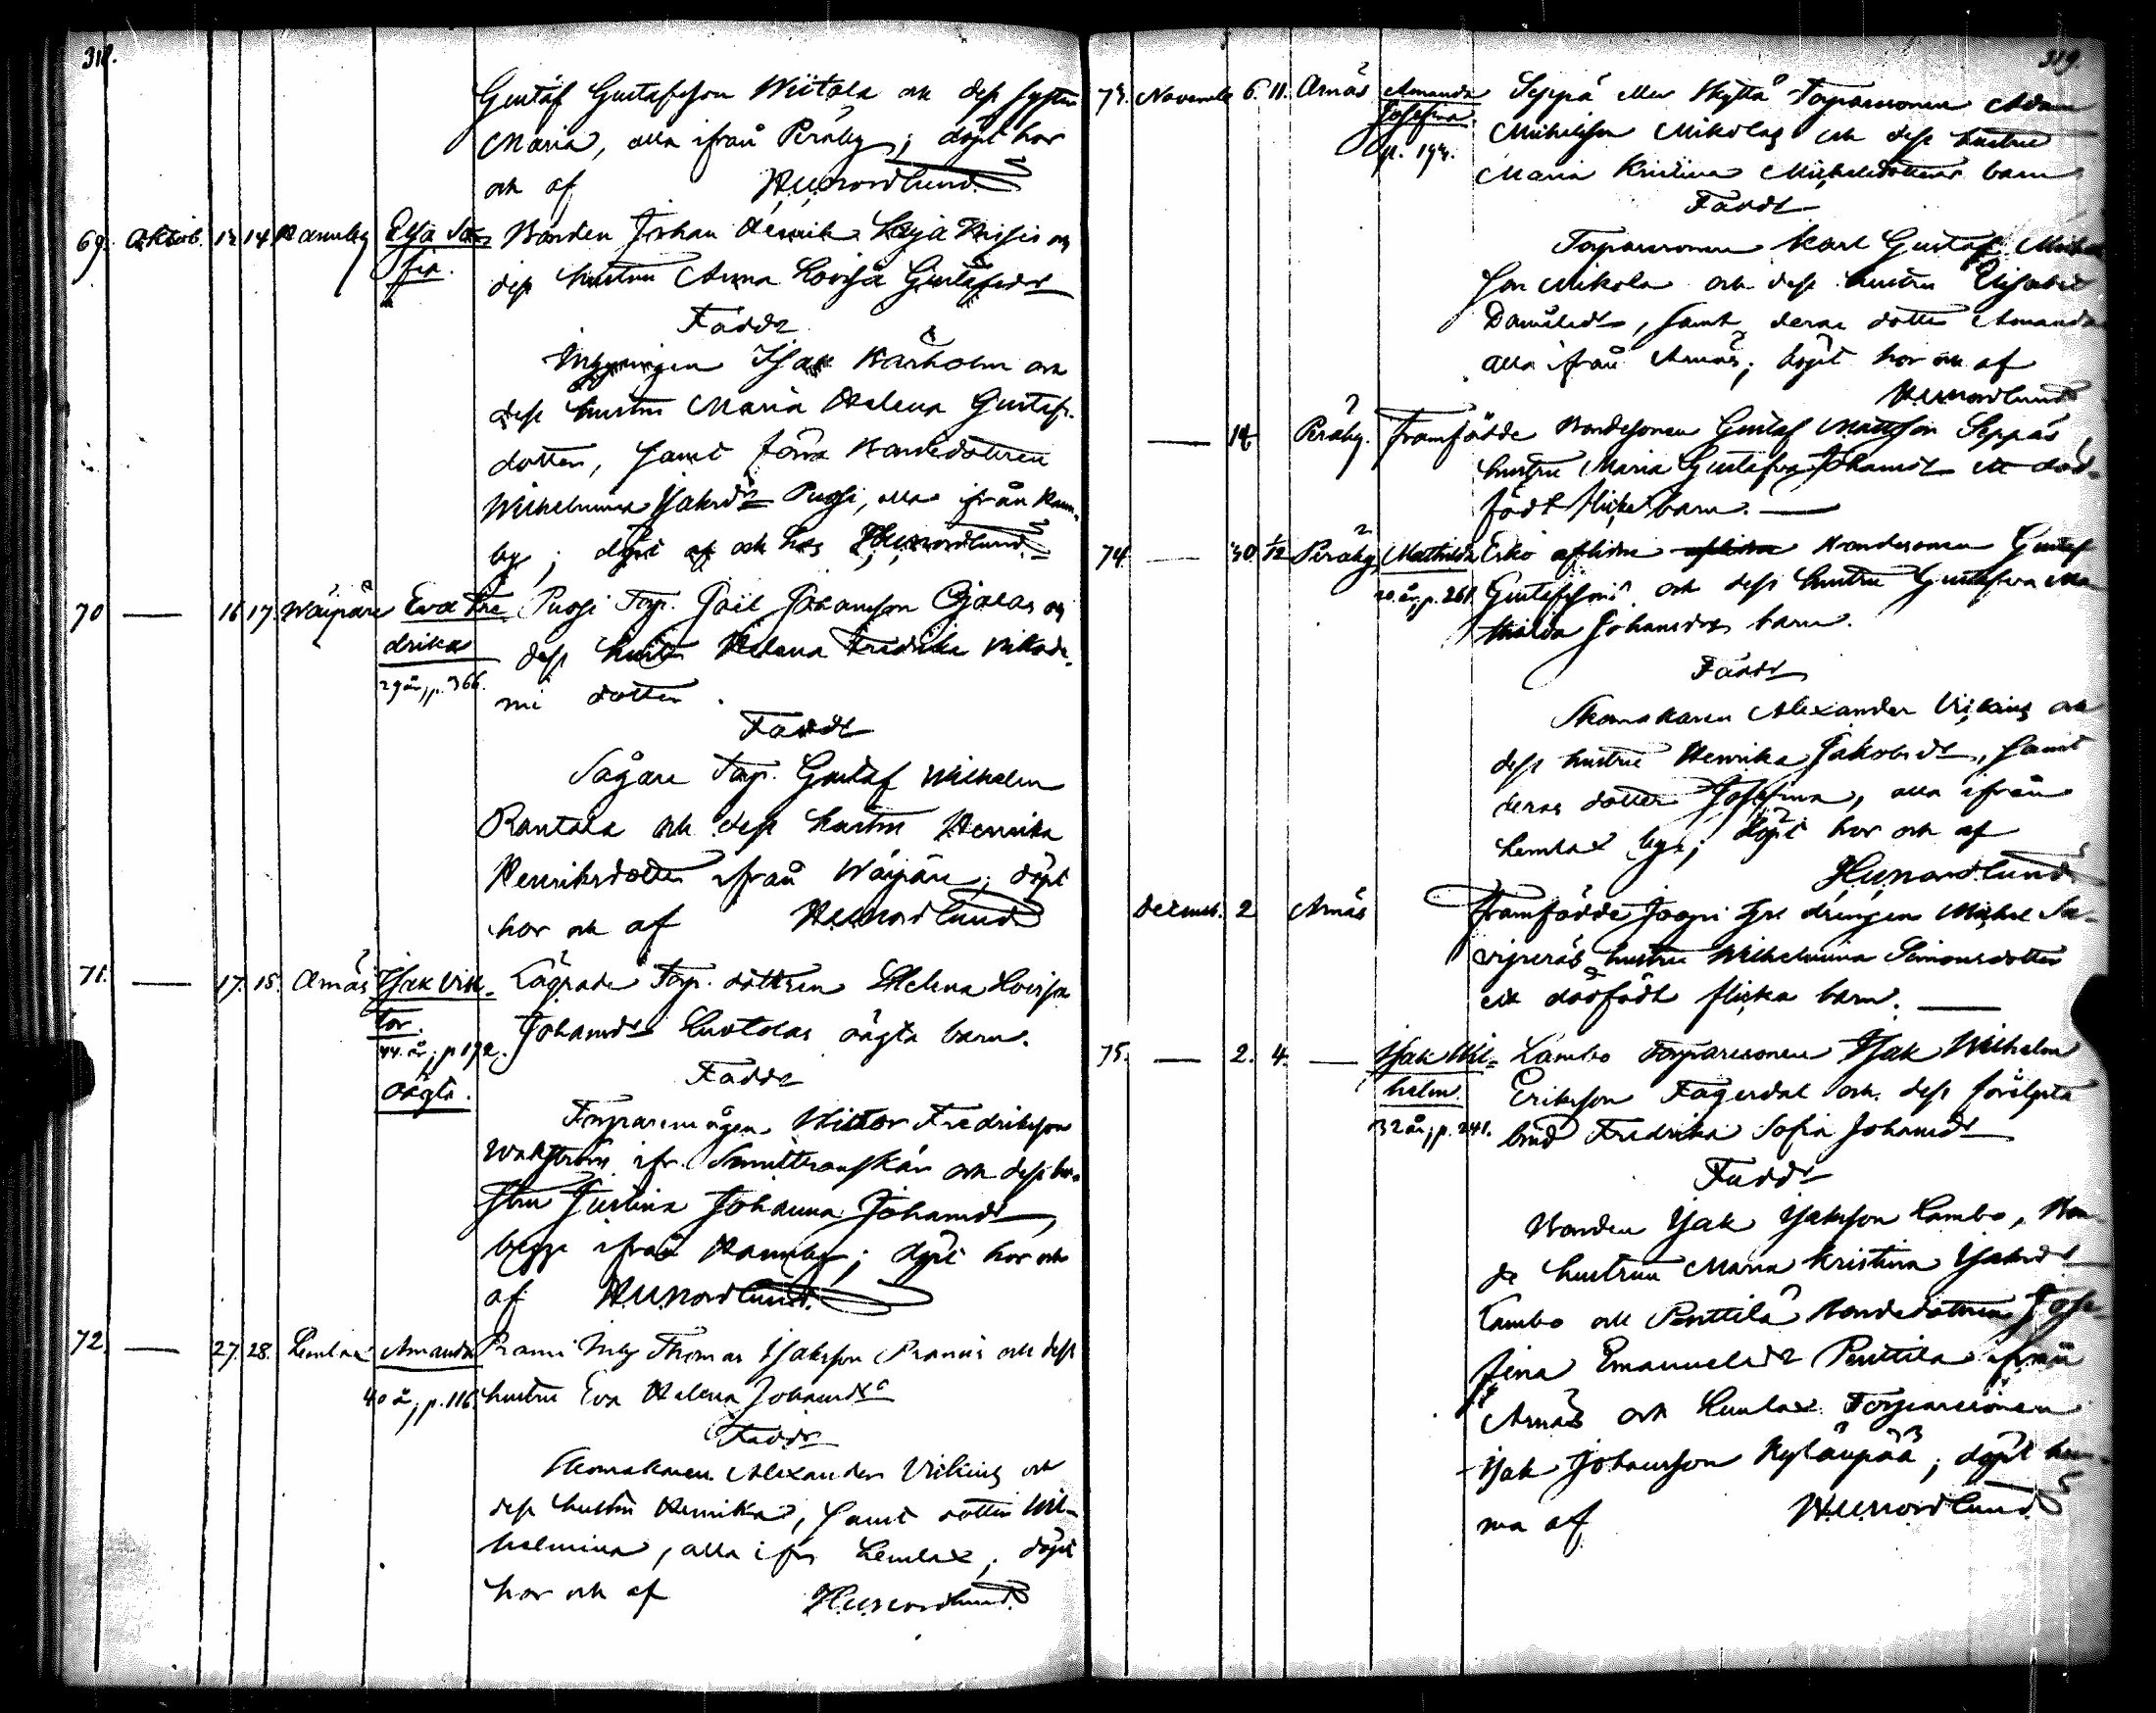 318.
Gustaf Gustafsson Wiitala och dess syster
Maria, alla ifrån Peräby; döpt hos
och af HUNordlund
69. Oktob. 12 14 Kannby Elsa So-
fia.
Bonden Johan Henrik Laija och
dess hustru Anna Lovisa Gustafsdr
Faddr
Inhysingen Isak Karholm och
dess hustru Maria Helena Gustafs-
dotter, samt förra Bondedottren
Wilhelmina Isaksdr Pussi, alla ifrån Kann-
by; döpt af och hos HUNordlund.
70 — 16 17. Wäipäre Eva Fre-
drika
29 år, p. 366.
Pussi Torp. Joel Johansson Ojalas och
dess hustru Helena Fredrika Nikode-
mi dotter.
Faddr
Sågare Torp. Gustaf Wilhelm
Rantala och dess hustru Henrika
Henriksdotter ifrån Wäipäre; döpt
hos och af HUNordlund
71. — 17. 18. Arnäs Isak Vik-
tor.
44 år, p 192.
oägta.
Torp. dottren Helena Lovisa
Johansdr Luotolas oägta barn.
Faddr
Torparemågen Wictor Fredriksson
Wahlström ifr. och dess hu-
stru Justina Johanna Johansdr,
begge ifrån Kannby; döpt hos och
af HUNordlund.
72 — 27. 28. Lemlax Amanda
40 år, p. 116.
Prami Inhy Thomas Isaksson Pramis och dess
hustru Eva Helena Johansdr
Faddr
Skomakaren Alexander Vikius och
dess hustru Henrika, samt dotter Wil-
helmina, alla ifr Lemlax; döpt
hos och af HUNordlund
319.
73. Novemb 6. 11. Arnäs Amanda
Josefina
p. 193.
Seppä eller Skyttä Torparesonen Adam
Michelsson Mikolas och dess hustru
Maria Kristina Michelsdotters barn
Faddr
Torparesonen Karl Gustaf Michels
son Mikola och dess hustru Elisabet
Danielsdr, samt deras dotter Amanda
alla ifrån Arnäs; döpt hos och af
HUNordlund
— 14 Peräby. Framfödde Bondesonen Gustaf Mattsson Seppäs
hustru Maria Gustafva Johansdr ett död-
födt flicke barn. —
74. — 30 1/12 Peräby Mathilda
20 år, p. 261.
Erkö aflidne Bondesonen Gustaf
Gustafssons och dess hustru Gustafva Ma-
thilda Johansdrs barn.
Faddr
Skomakaren Alexander Vikius och
dess hustru Henrika Jakobsdr, samt
deras dotter Josefina, alla ifrån
Lemlax by; döpt hos och af
HUNordlund
Decemb. 2 Arnäs
Framfödde Jaopi drengen Michel
hustru Wilhelmina Simonsdotter
ett dödfödt flicka barn. —
75. — 2. 4. — Isak Wil-
helm.
32 år, p. 241.
Lambo Torparesonen Isak Wilhelm
Eriksson Fagerdal och dess
brud Fredrika Sofia Johansdr
Faddr
Bonden Isak Isaksson Lambo, Bon-
de hustrun Maria Kristina Isaksdr
Lambo och Penttilä Bondedottren Jose-
fina Emanuelsdr Penttilä ifrån
Arnäs och Lemlax Torparesonen
Isak Johansson Kylänpää; döpt hem-
ma af HUNordlund